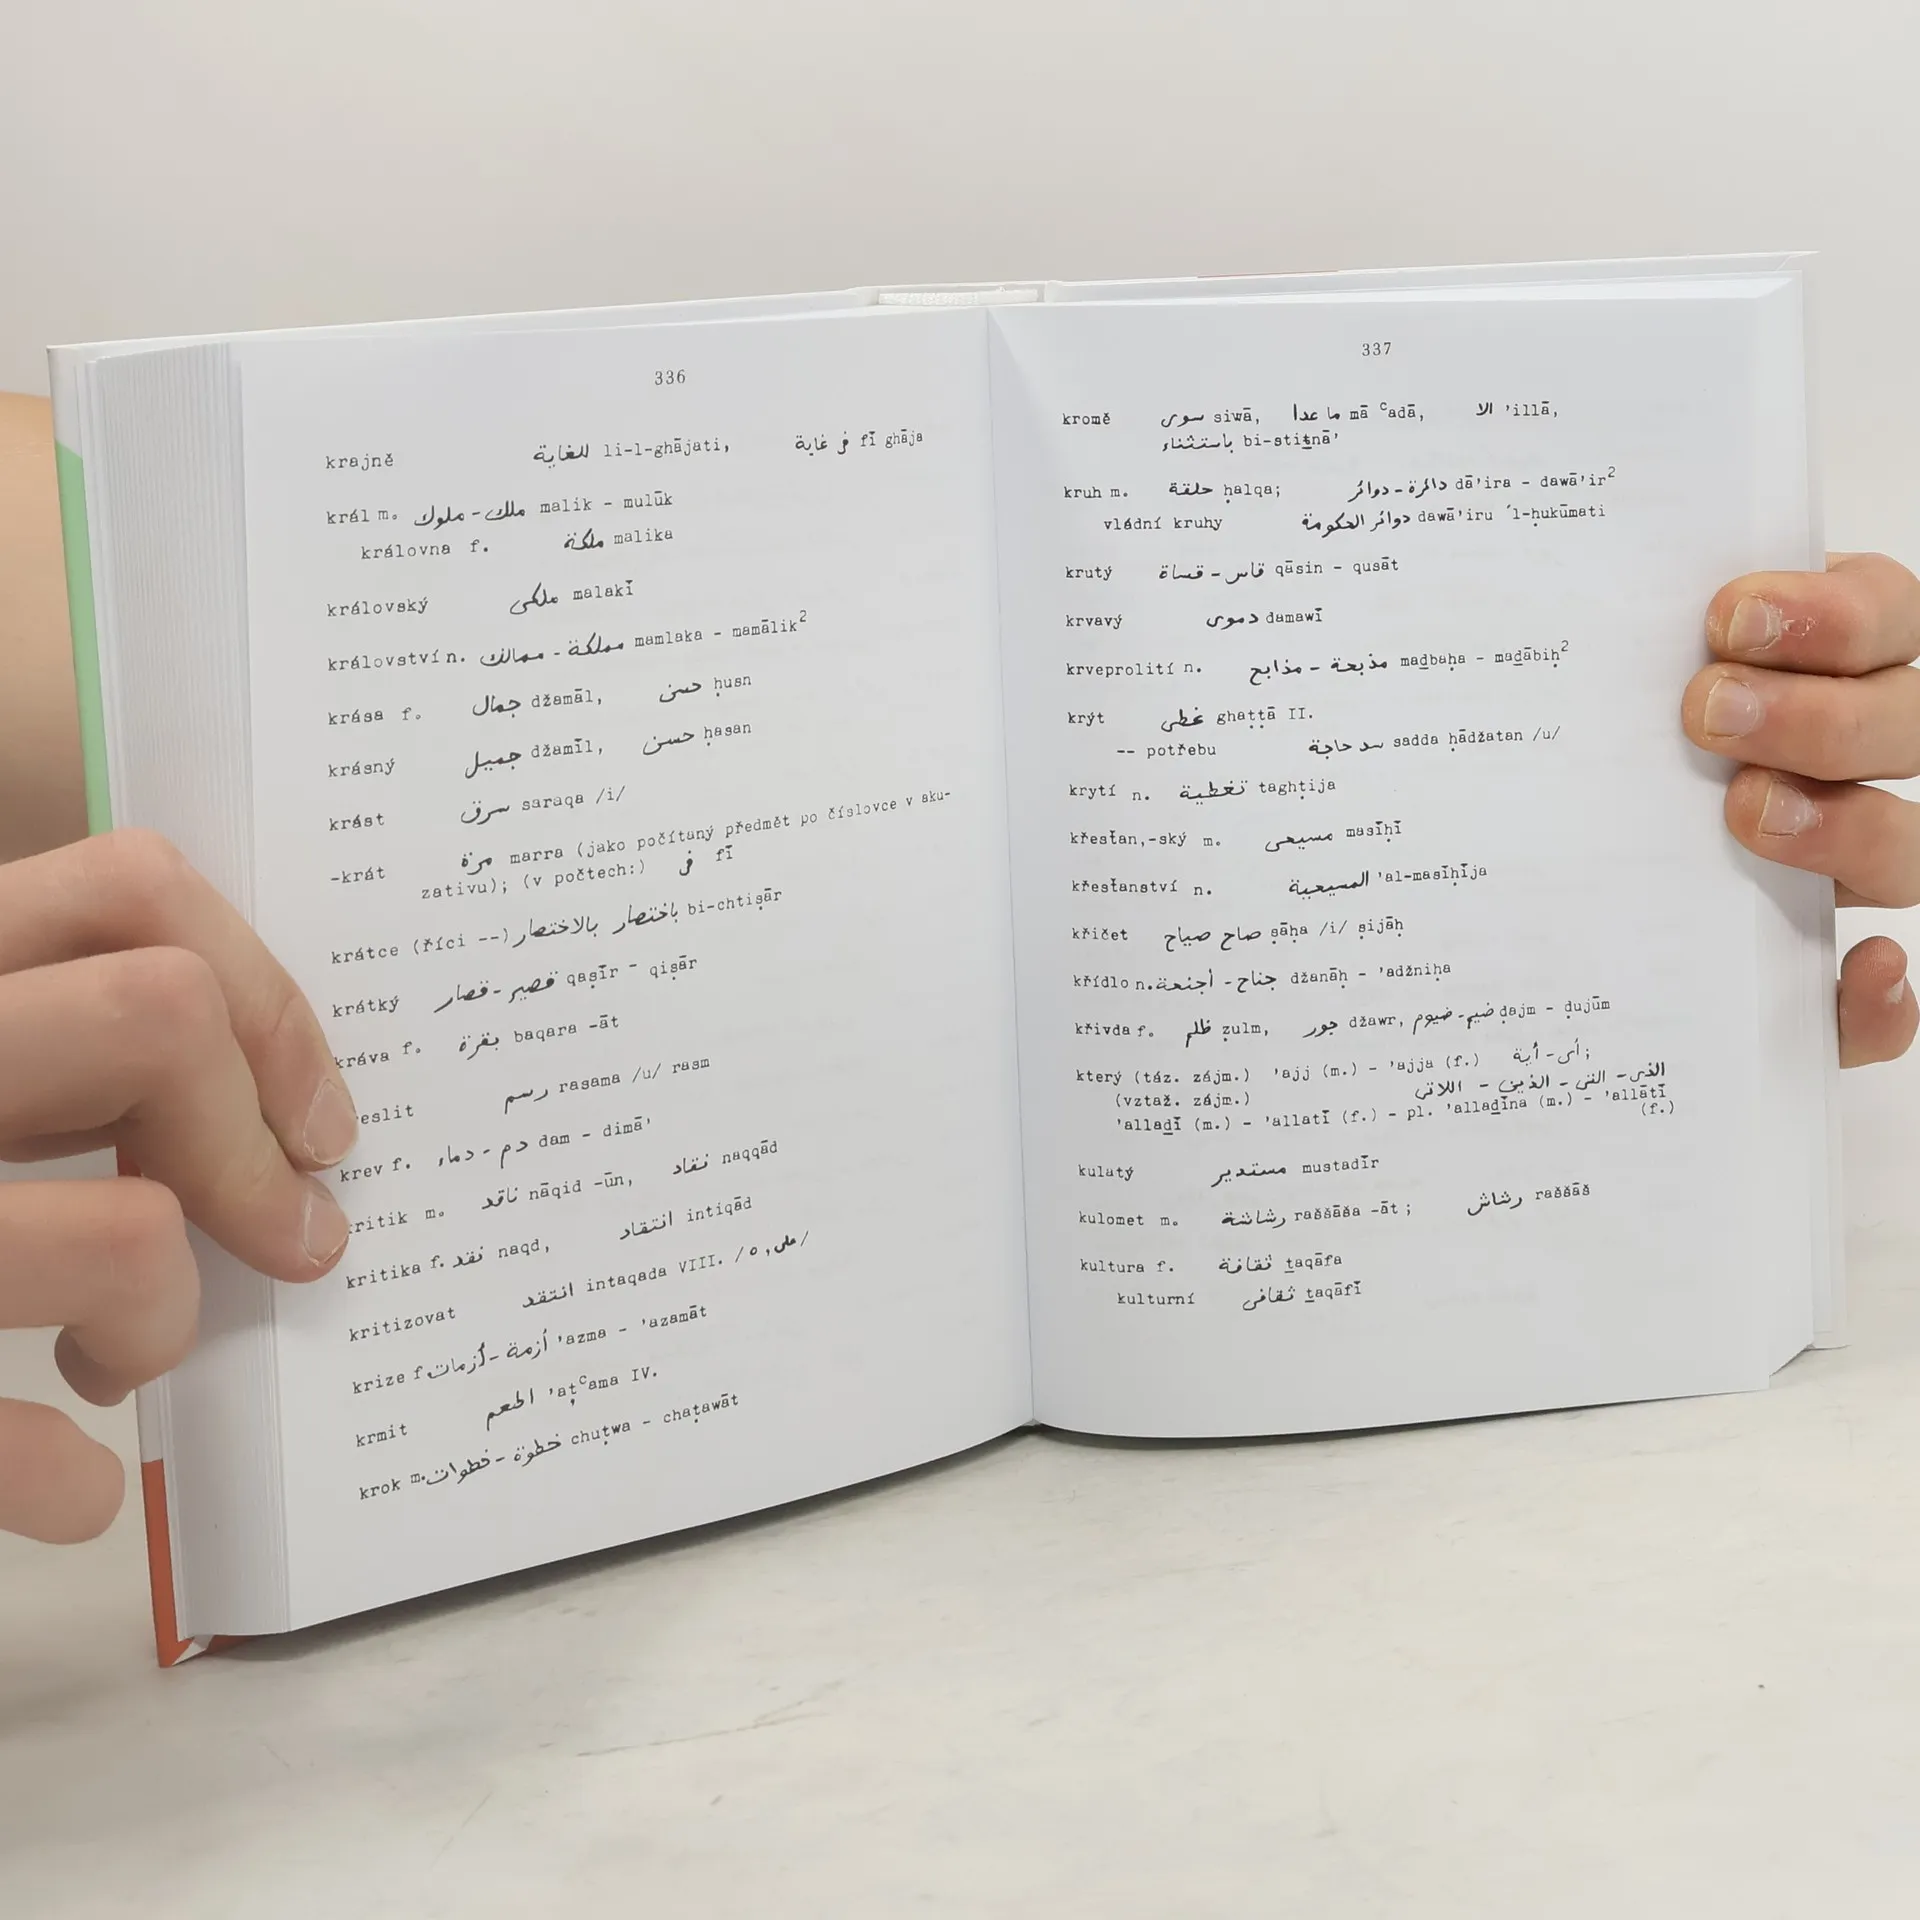 336
krajně للغاية li-l-ghājati, في غاية fī ghāja
král m. ملك - ملوك malik - mulūk
královna f. ملكة malika
královský ملكى malakī
království n. مملكة - ممالك mamlaka - mamālik²
krása f. جمال džamāl, حسن ḥusn
krásný جميل džamīl, حسن ḥasan
krást سرق saraqa /i/
-krát مرة marra (jako počítaný předmět po číslovce v aku-
zativu); (v počtech:) في fī
krátce (říci --) باختصار بالاختصار bi-chtiṣār
krátký قصير - قصار qaṣīr - qiṣār
kráva f. بقرة baqara -āt
reslit رسم rasama /u/ rasm
krev f. دم - دماء dam - dimā'
kritik m. ناقد nāqid -ūn, نقاد naqqād
kritika f. نقد naqd, انتقاد intiqād
kritizovat انتقد intaqada VIII. /ه, على/
krize f. أزمة - أزمات 'azma - 'azamāt
krmit اطعم 'aṭᶜama IV.
krok m. خطوة - خطوات chuṭwa - chaṭawāt
337
kromě سوى siwā, ما عدا mā ᶜadā, الا 'illā,
باستثناء bi-stiṯnā'
kruh m. حلقة ḥalqa; دائرة - دوائر dā'ira - dawā'ir²
vládní kruhy دوائر الحكومة dawā'iru ´l-ḥukūmati
krutý قاس - قساة qāsin - qusāt
krvavý دموى damawī
krveprolití n. مذبحة - مذابح maḏbaḥa - maḏābiḥ²
krýt غطى ghaṭṭā II.
-- potřebu سد حاجة sadda ḥādžatan /u/
krytí n. تغطية taghṭija
křesťan,-ský m. مسيحى masīḥī
křesťanství n. المسيحية 'al-masīḥīja
křičet صاح صياح ṣāḥa /i/ ṣijāḥ
křídlo n. جناح - أجنحة džanāḥ - 'adžniḥa
křivda f. ظلم ẓulm, جور džawr, ضيم - ضيوم ḍajm - ḍujūm
který (táz. zájm.) 'ajj (m.) - 'ajja (f.) أى - أية ;
(vztaž. zájm.) الذى - التى - الذين - اللاتى
'allaḏī (m.) - 'allatī (f.) - pl. 'allaḏīna (m.) - 'allātī
(f.)
kulatý مستدير mustadīr
kulomet m. رشاشة raššāša -āt; رشاش raššāš
kultura f. ثقافة ṯaqāfa
kulturní ثقافى ṯaqāfī